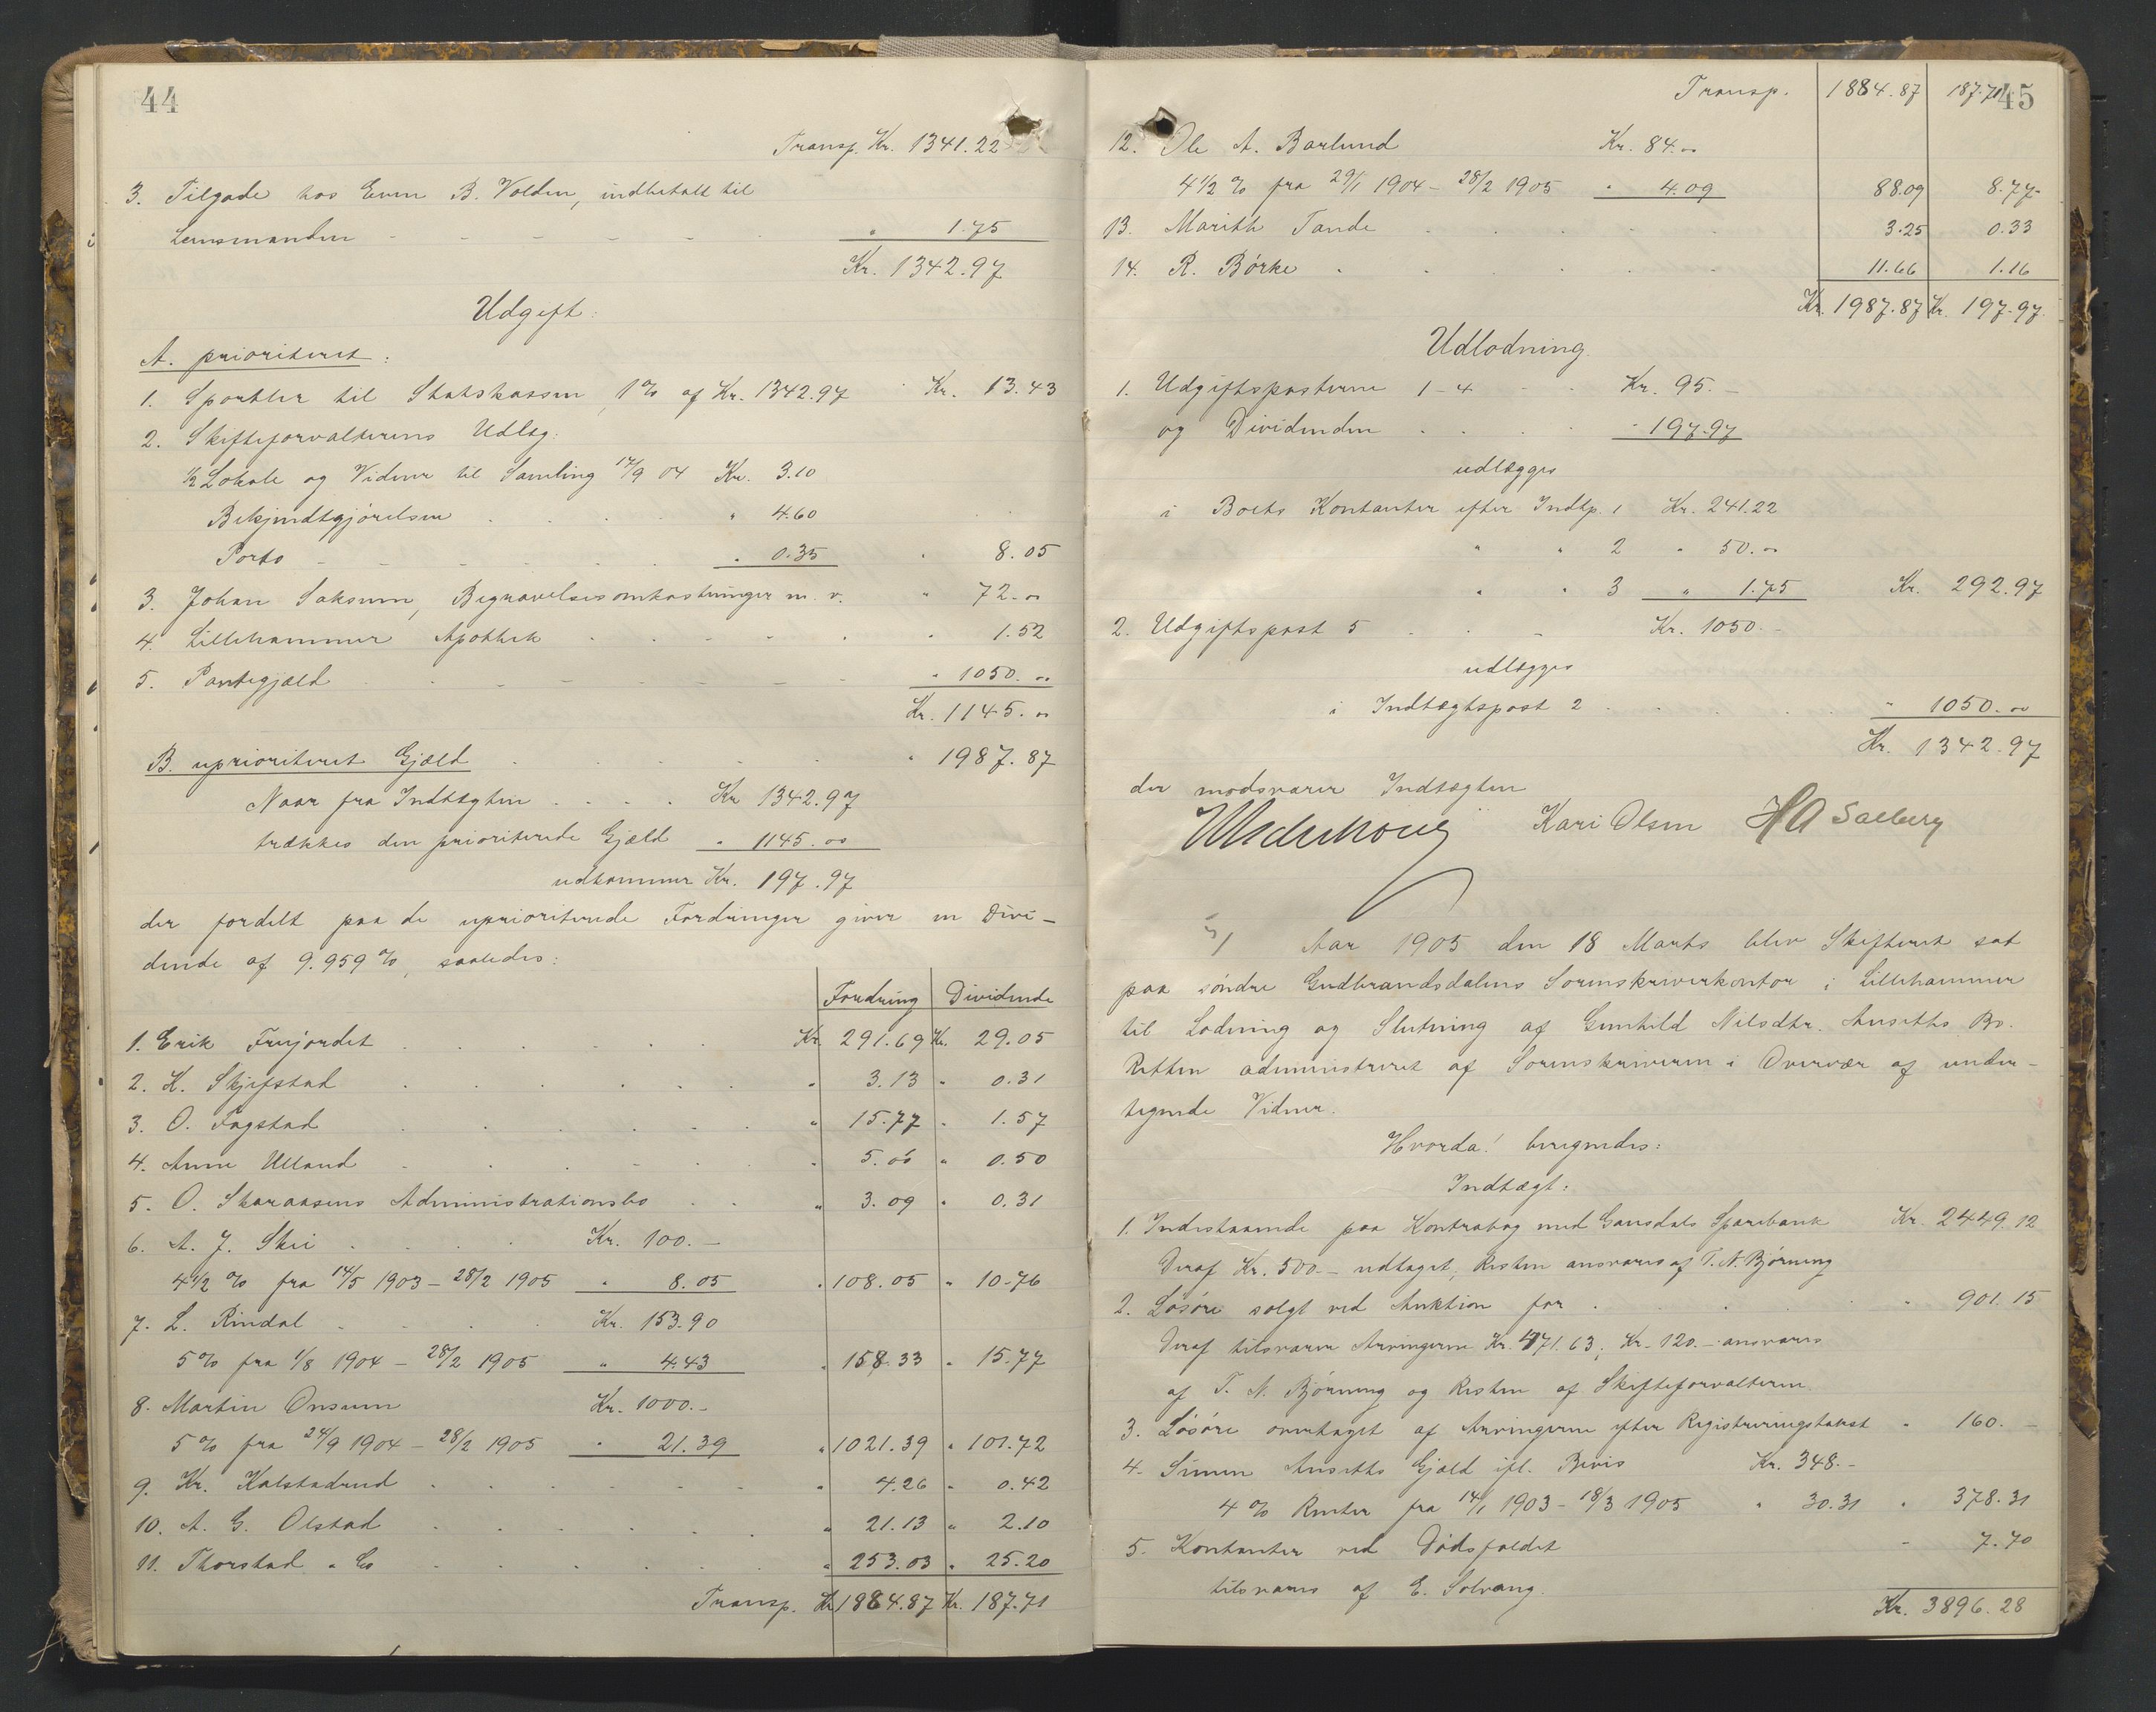 44
Transp. Kr. 1341.22
3. Tilgode hos Even B. Volden, indbetalt til
Lensmanden - - - - - " 1.75
Kr. 1342.97
Udgift:
A. prioriteret:
1. Sportler til Statskassen, 1% af Kr. 1342.97 Kr. 13.43
2. Skifteforvalterens Udlæg:
1/2 Lokale og Vidner til Samling 17/9 04 Kr. 3.10
Bekjendtgjørelsen . . . . " 4.60
Porto - - - - . . " 0.35 " 8.05
3. Johan Saksum, Begravelsesomkostninger m. v. " 72.00
4. Lillehammer Apothek . . . . . " 1.52
5. Pantegjæld . . - - - - - - " 1050.00
Kr. 1145.00
B. uprioriteret Gjæld . . . . . " 1987.87
Naar fra Indtægten . . . . Kr 1342.97
trækkes den prioriterede Gjæld " 1145.00
udkommer Kr. 197.97
der fordelt paa de uprioriterede Fordringer giver en Divi-
dende af 9.959%, saaledes:
Fordring Dividende
1. Erik Frujordet . . . . . Kr. 291.69 Kr. 29.05
2. K. Skjefstad . . . . . . " 3.13 " 0.31
3. O. Fagstad . . . . . . " 15.77 " 1.57
4. Anne Ulland . . . . . " 5.00 " 0.50
5. O. Skaraasens Administrationsbo . . " 3.09 " 0.31
6. A. J. Skei . . . . Kr. 100.-
4 1/2 % fra 14/5 1903 - 28/2 1905 " 8.05 " 108.05 " 10.76
7. L. Rindal . . . . Kr. 153.90
5% fra 1/8 1904 - 28/2 1905 " 4.43 " 158.33 " 15.77
8. Martin Onsum Kr. 1000.-
5% fra 24/9 1904 - 28/2 1905 " 21.39 " 1021.39 " 101.72
9. Kr. Kalstadrud . . . . . " 4.26 " 0.42
10. A. G. Olstad . . . . . . " 21.13 " 2.10
11. Thorstad & Co . . . . . " 253.03 " 25.20
Transp. Kr 1884.87 Kr. 187.71
45
Transp. 1884.87 187.71
12. Ole A. Barlund Kr. 84.00
4 1/2 % fra 29/1 1904 - 28/2 1905 " 4.09 88.09 8.77
13. Marith Tande . . . . . 3.25 0.33
14. R. Børke . . . . . 11.66 1.16
Kr. 1987.87 Kr. 197.97
Udlodning
1. Udgiftsposterne 1-4 - . Kr. 95.-
og Dividenden . . . . " 197.97
udlægges
i Boets Kontanter efter Indtp. 1 Kr. 241.22
" " 2 " 50.00
" " 3 " 1.75 Kr. 292.97
2. Udgiftspost 5 . . - Kr. 1050.-
udlægges
i Indtægtspost 2 . . . . . " 1050.00
Kr. 1342.97
der modsvarer Indtægten
Kari Olsen HA Salberg
Aar 1905 den 18 Marts blev Skifteret sat
paa søndre Gudbrandsdalens Sorenskriverkontor i Lillehammer
til Lodning og Slutning af Gunhild Nilsdtr. Anseths Bo.
Retten administreret af Sorenskriveren i Overvær af under-
tegnede Vidner.
Hvorda! beregnedes:
Indtægt:
1. Indestaaende paa Kontrabog med Gausdals Sparebank Kr. 2449.12
Deraf Kr. 500.- udtaget, Resten ansvares af T. N. Bjørning
2. Løsøre solgt ved Auktion for . . . . . " 901.15
Deraf tilsvarer Arvingerne Kr. 471.63, Kr. 120.- ansvares
af T. N. Bjørning og Resten af Skifteforvalteren.
3. Løsøre overtaget af Arvingerne efter Registreringstakst " 160.-
4. Simen Anseths Gjæld ifl. Bevis Kr. 348.-
4% Renter fra 14/1 1903 - 18/3 1905 " 30.31 " 378.31
5. Kontanter ved Dødsfaldet - 7.70
tilsvares af E. Solvang.
Kr. 3896.28